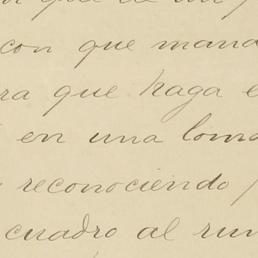 que de un
con que mana
ra que haga e
en una loma
reconociendo
cuadro al rum